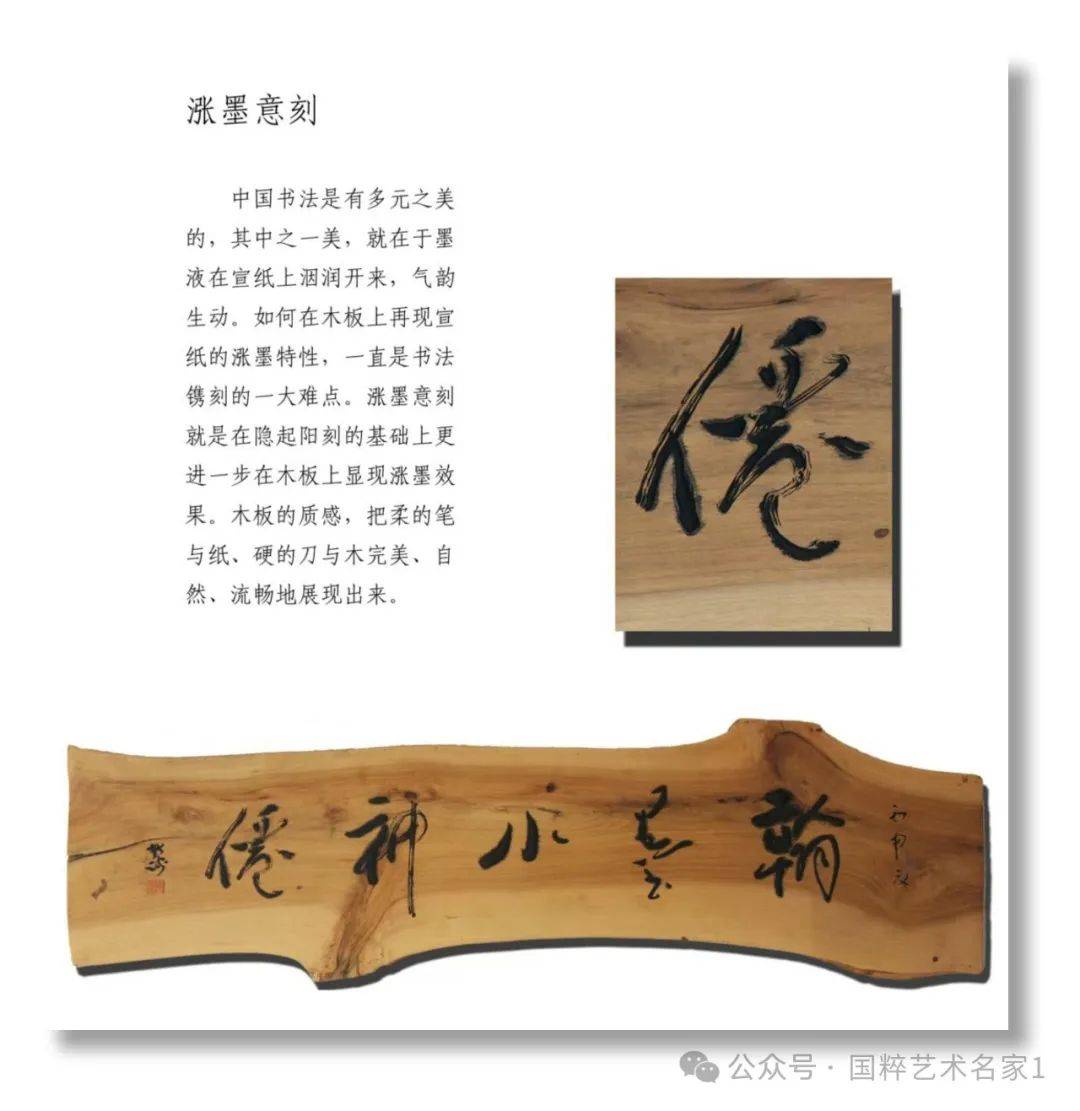 涨墨意刻
中国书法是有多元之美
的，其中之一美，就在于墨
液在宣纸上洇润开来，气韵
生动。如何在木板上再现宣
纸的涨墨特性，一直是书法
镌刻的一大难点。涨墨意刻
就是在隐起阳刻的基础上更
进一步在木板上显现涨墨效
果。木板的质感，把柔的笔
与纸、硬的刀与木完美、自
然、流畅地展现出来。
僊
翰墨小神僊
公众号·国粹艺术名家1